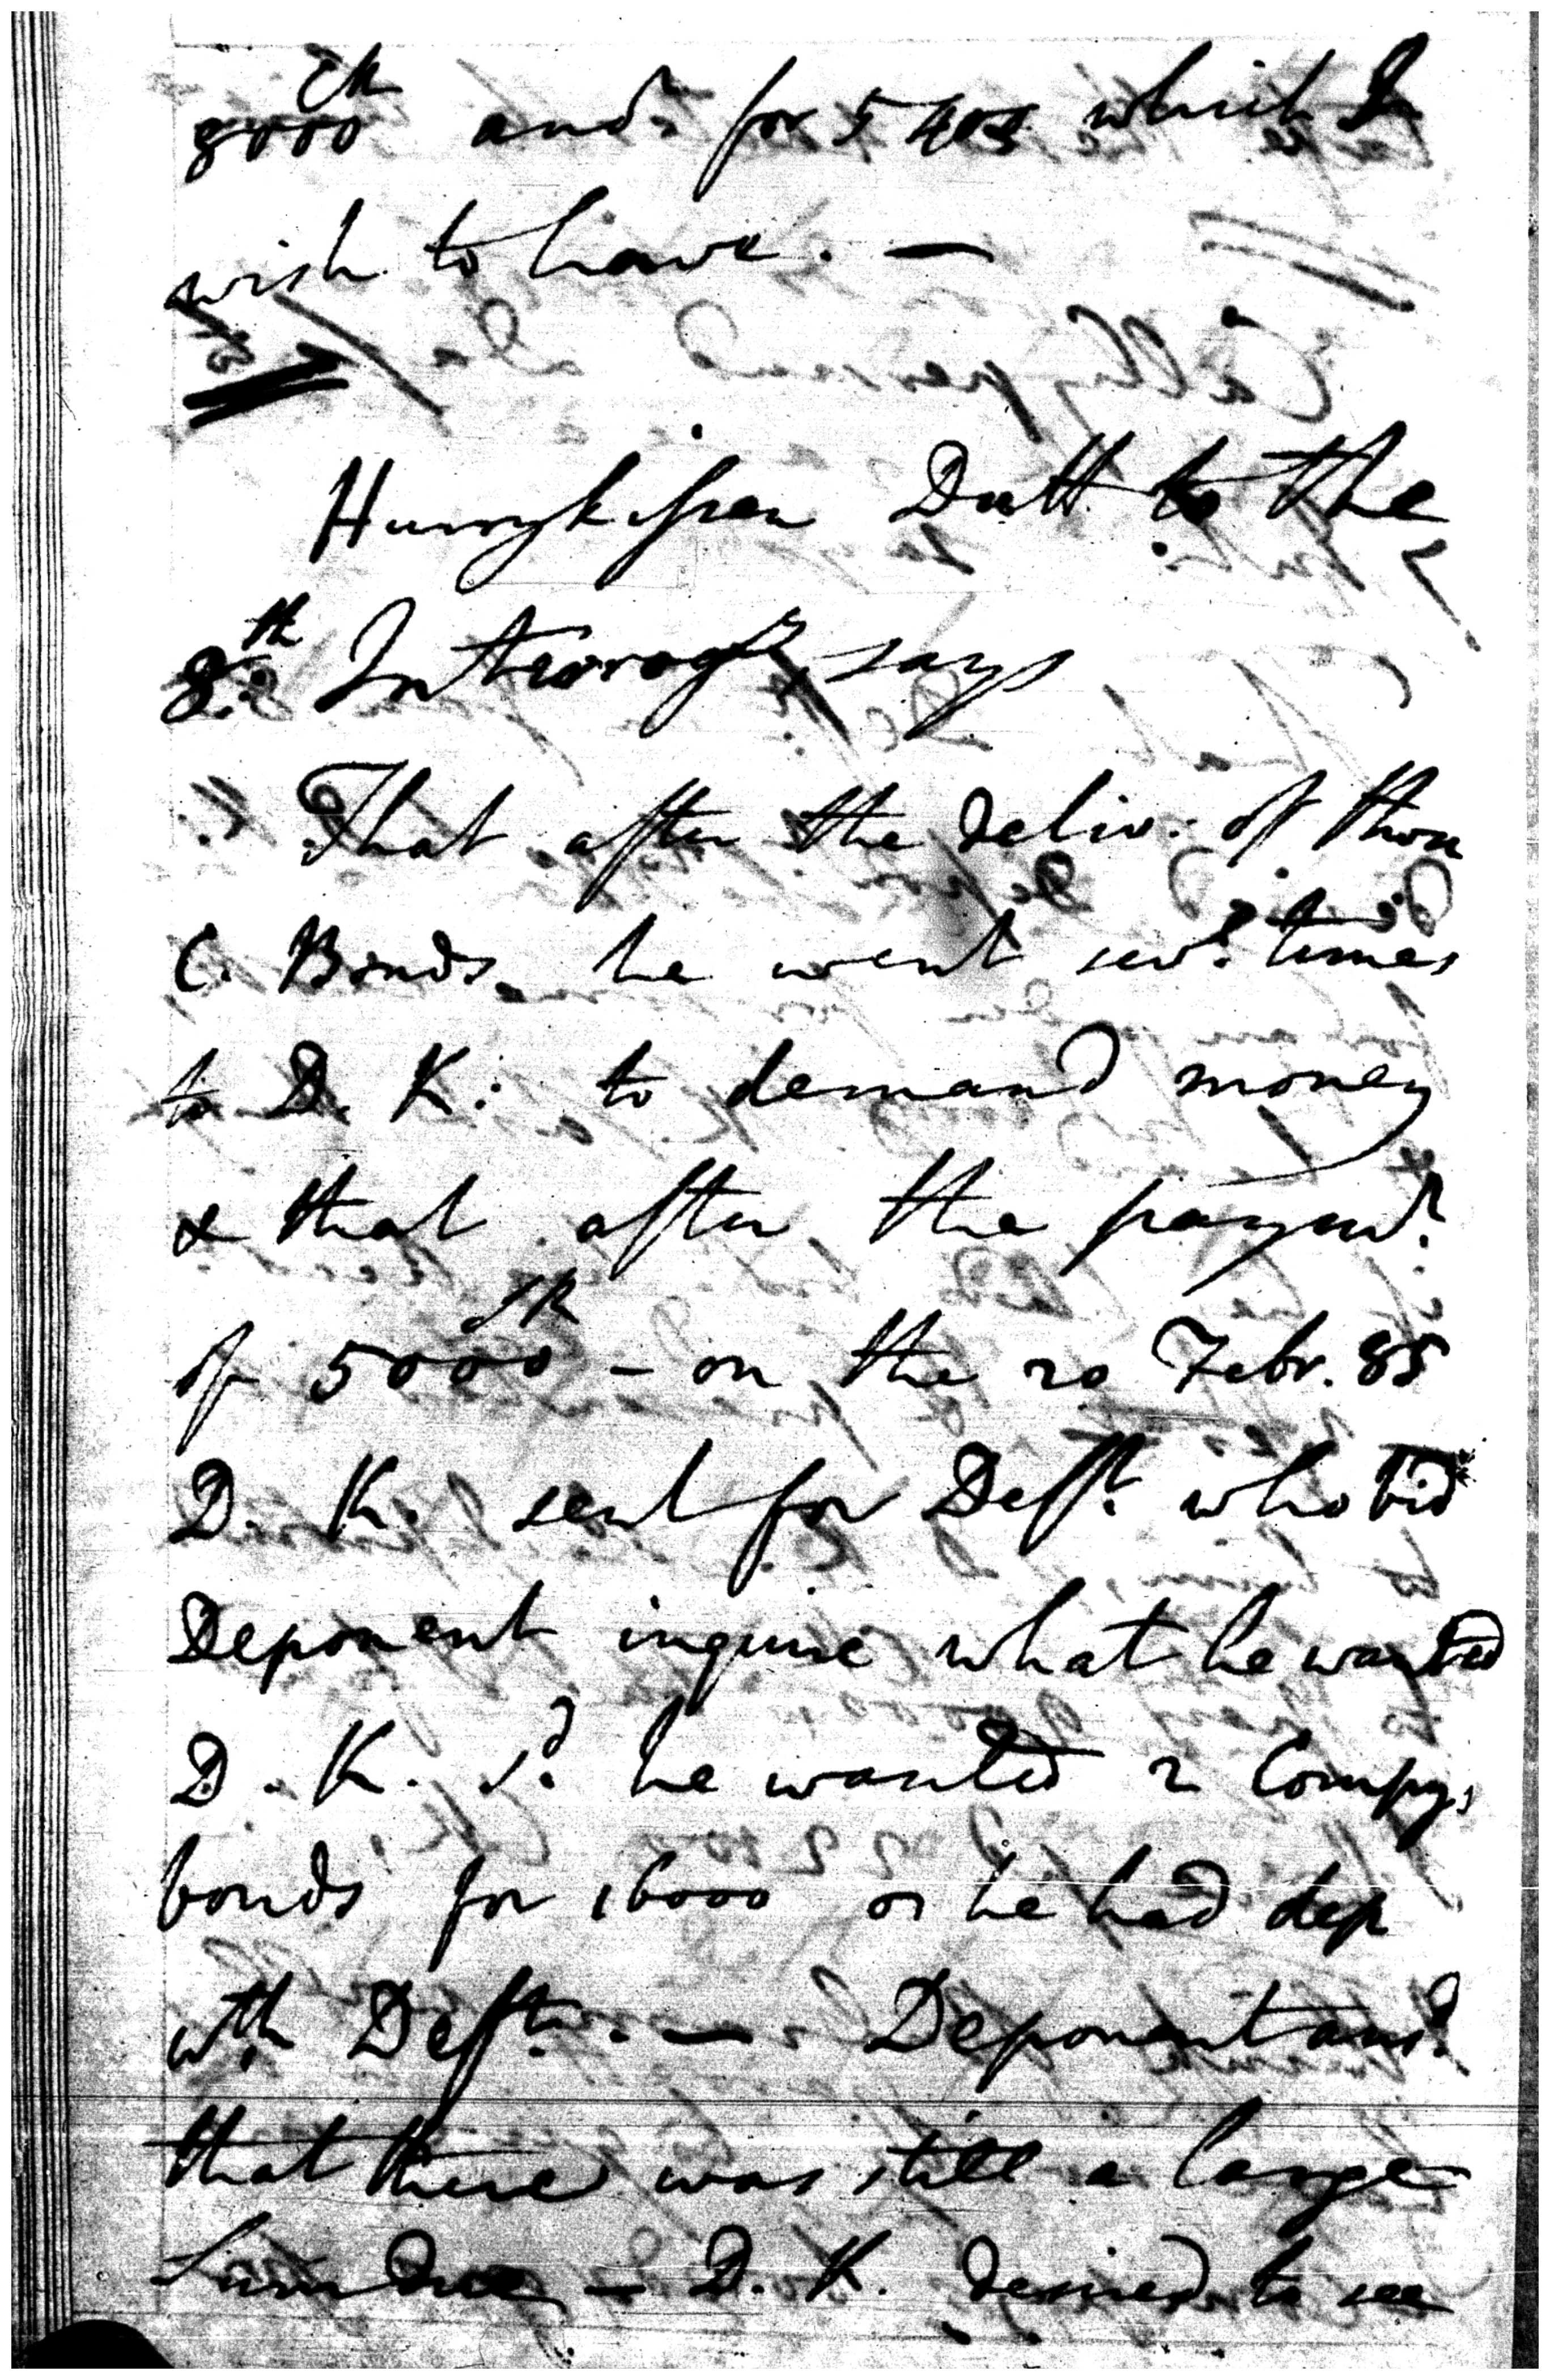 8000 and for 5403 which I
wish to have. —
Hurrykissen Dutt to the
8th Interrogy says
That after the deliv. of those
C. Bonds he went sevl. times
to D. K: to demand money
& that after the paymt.
of 5000 - on the 20 Febr. 85
D. K. sent for Deft. who bid
Deponent inquire what he wanted
D. K. sd. he wanted 2 Compys
bonds for 16000 he had dep
wth Deft. — Deponent ansd.
that there was still a large
Sum due — D. K. desired to see